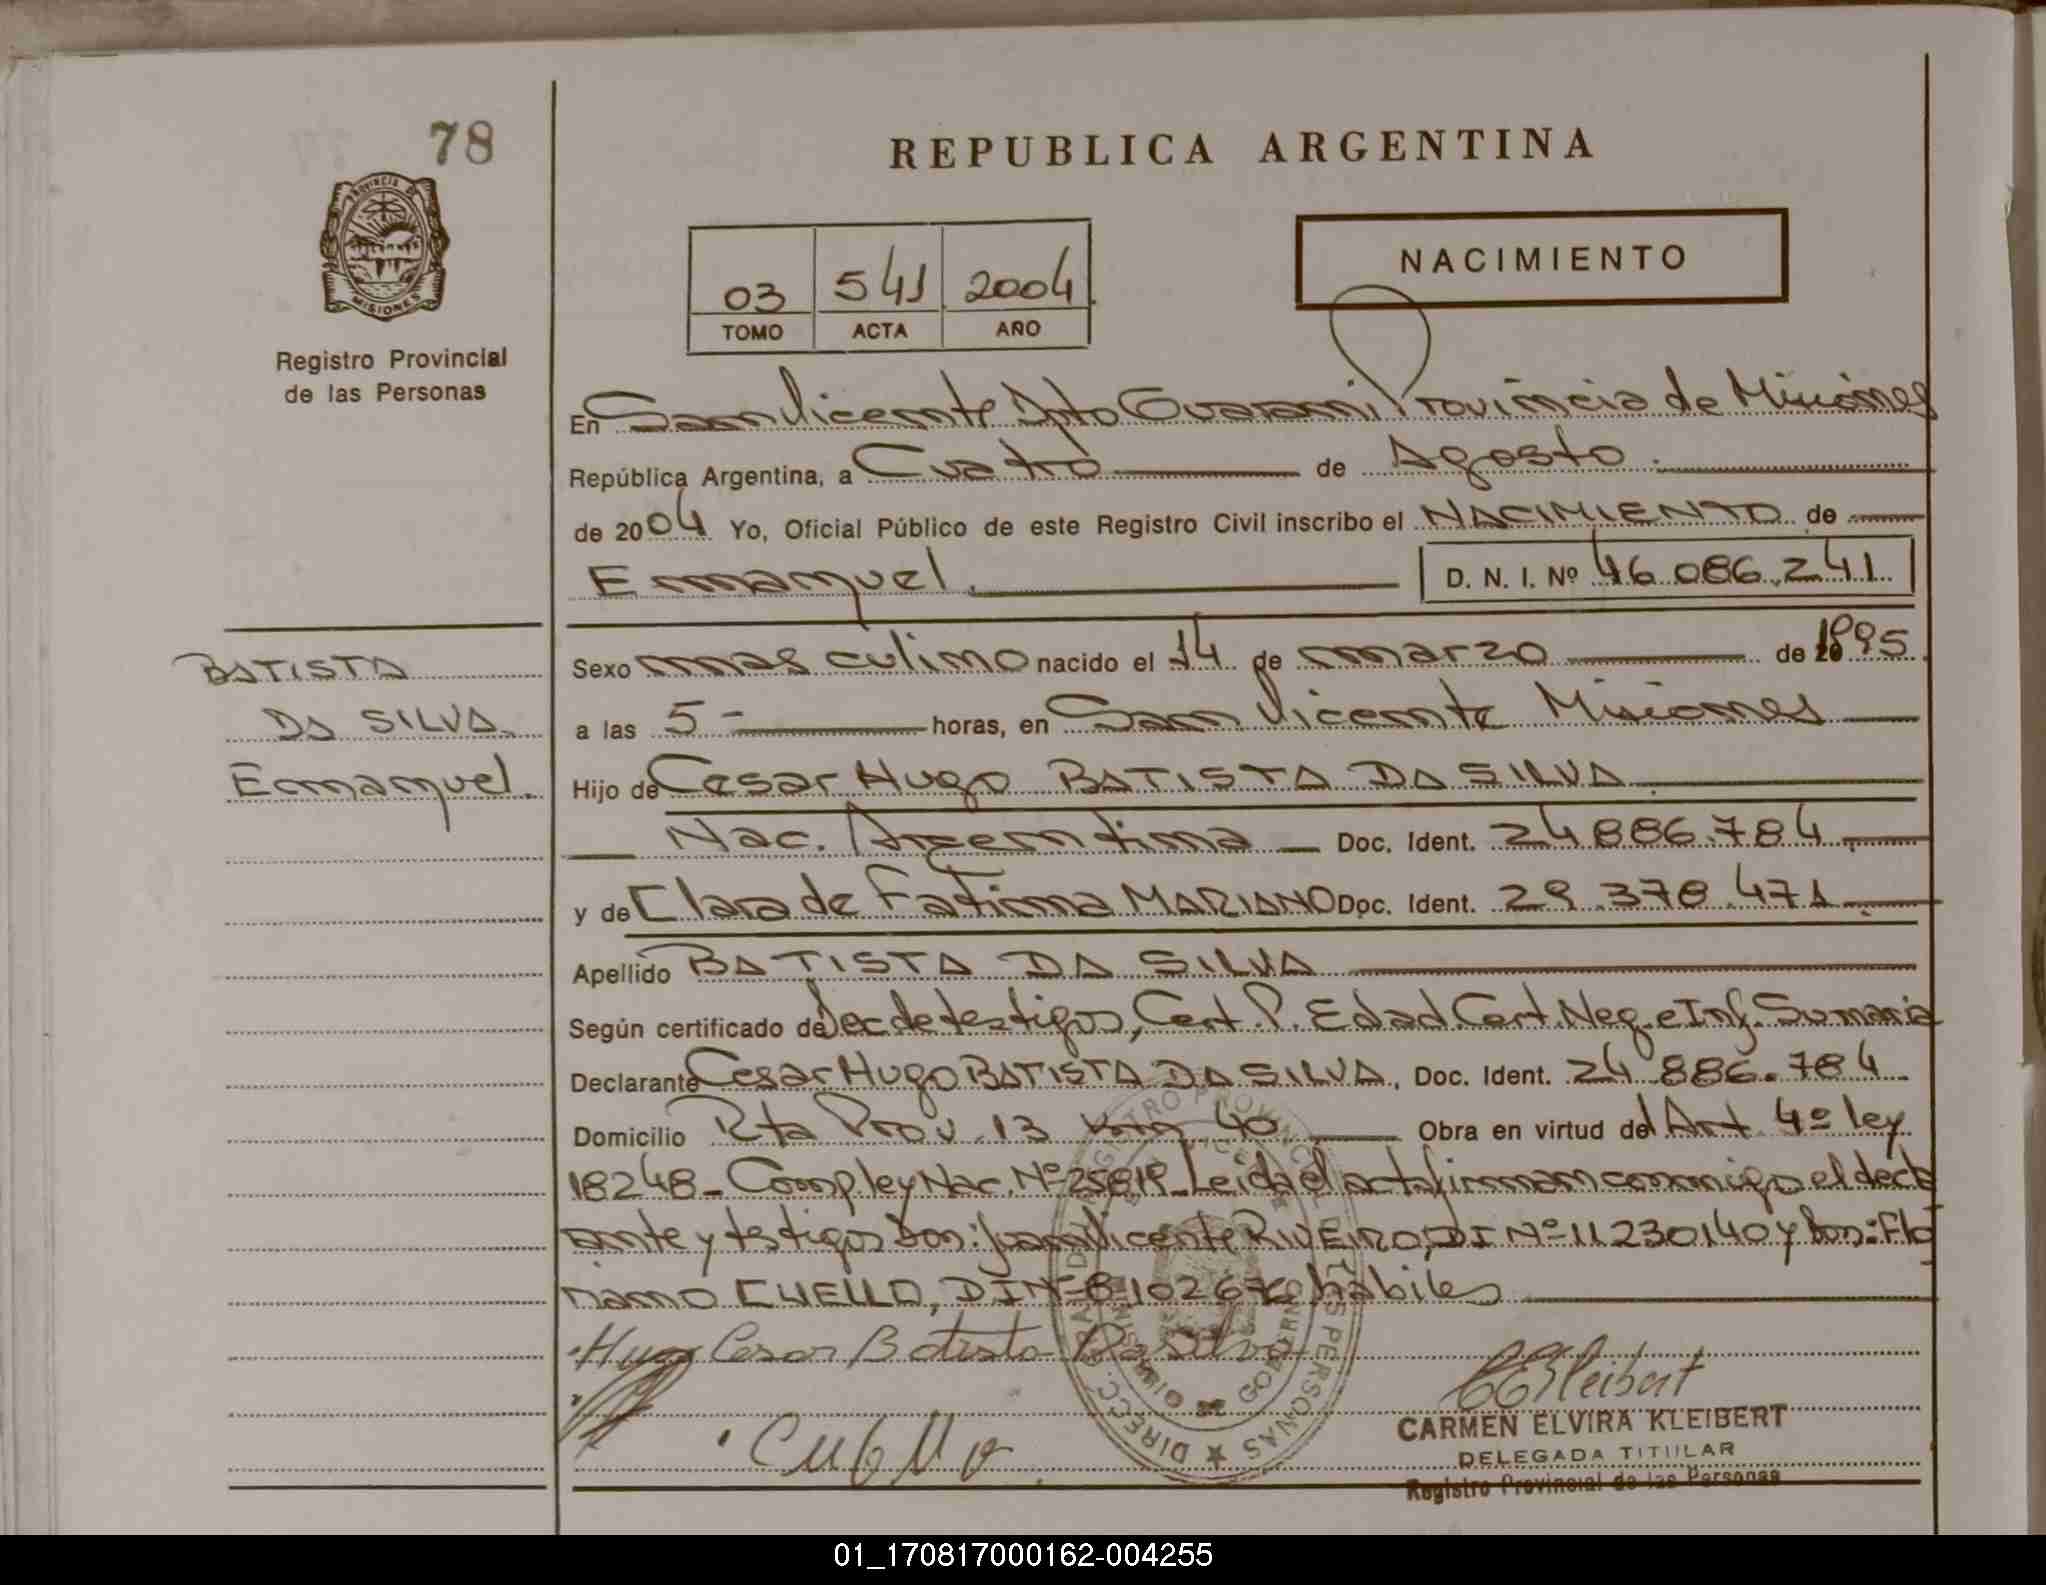 78
REPUBLICA ARGENTINA
PROVINCIA DE
MISIONES
Registro Provincial
de las Personas
03 541 2004
TOMO ACTA AÑO
NACIMIENTO
En San Vicente Dpto Guarani Provincia de Misiones
República Argentina, a Cuatro de Agosto
de 2004 Yo, Oficial Público de este Registro Civil inscribo el NACIMIENTO de
Emanuel D. N. I. Nº 46.086.241
Sexo masculino nacido el 14 de marzo de 1995
a las 5 - horas, en San Vicente Misiones
Hijo de Cesar Hugo BATISTA DA SILVA
Nac. Argentina Doc. Ident. 24886.784
y de Clara de Fatima MARIANO Doc. Ident. 29.378.471
Apellido BATISTA DA SILVA
Según certificado de Dec de testigos, Cert. P. Edad. Cert. Neg. e Inf. Sumaria
Declarante Cesar Hugo BATISTA DA SILVA, Doc. Ident. 24.886.784
Domicilio Rta Prov. 13 Km 40 Obra en virtud del Art 4º ley
18248 - Comp. ley Nac. Nº 25819 - Leida el acta firman conmigo el decla
ante y testigos Don: Juan Vicente RIVEIRO, DI Nº 11230140 y Don: Flo
riano CUELLO, DI Nº 8-102676 habiles
BATISTA
DA SILVA
Emanuel.
Hugo Cesar Batista Da Silva
Cuello
CEKleibert
CARMEN ELVIRA KLEIBERT
DELEGADA TITULAR
Registro Provincial de las Personas
01_170817000162-004255